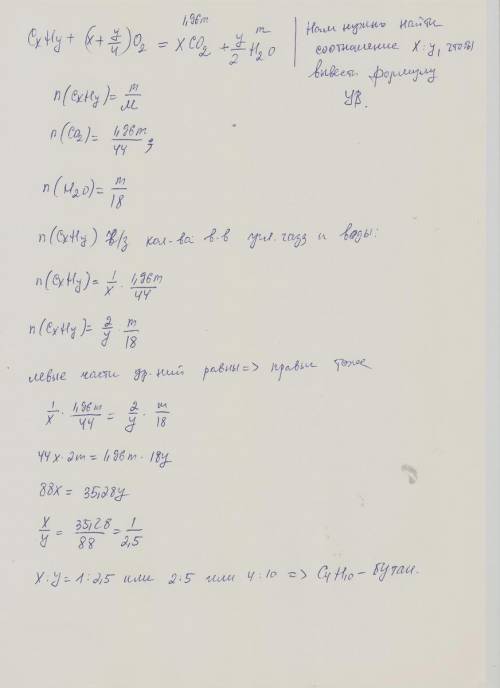 1,96m m
CxHy + (x + y/4)O2 = XCO2 + y/2 H2O
Нам нужно найти
соотношение X:y, чтобы
вывести формулу
УВ.
n(CxHy) = m/M
n(CO2) = 1,96m/44 ;
n(H2O) = m/18
n(CxHy) ч/з кол-ва в-в угл. газа и воды:
n(CxHy) = 1/x · 1,96m/44
n(CxHy) = 2/y · m/18
левые части ур-ний равны => правые тоже
1/x · 1,96m/44 = 2/y · m/18
44x · 2m = 1,96m · 18y
88x = 35,28y
x/y = 35,28/88 = 1/2,5
X:y = 1:2,5 или 2:5 или 4:10 => C4H10 - бутан.